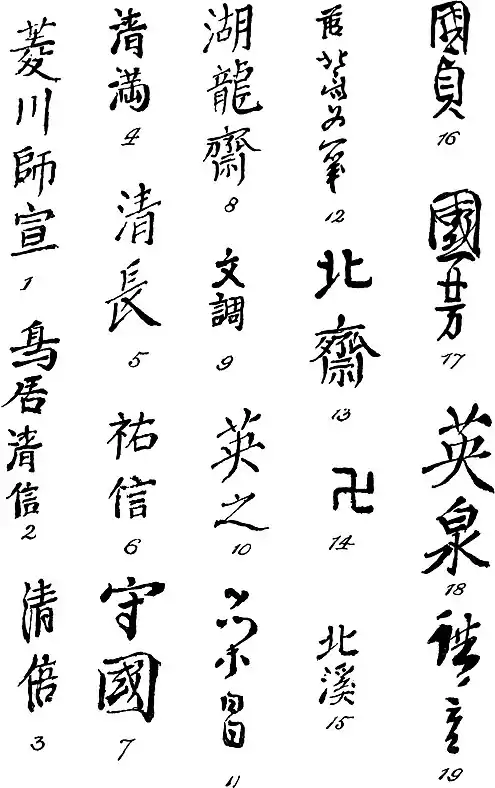 菱川師宣
1
鳥居清信
2
清倍
3
清満
4
清長
5
祐信
6
守國
7
湖龍齋
8
文調
9
英之
10
栄昌
11
前北斎為一筆
12
北齋
13
卍
14
北溪
15
國貞
16
國芳
17
英泉
18
19